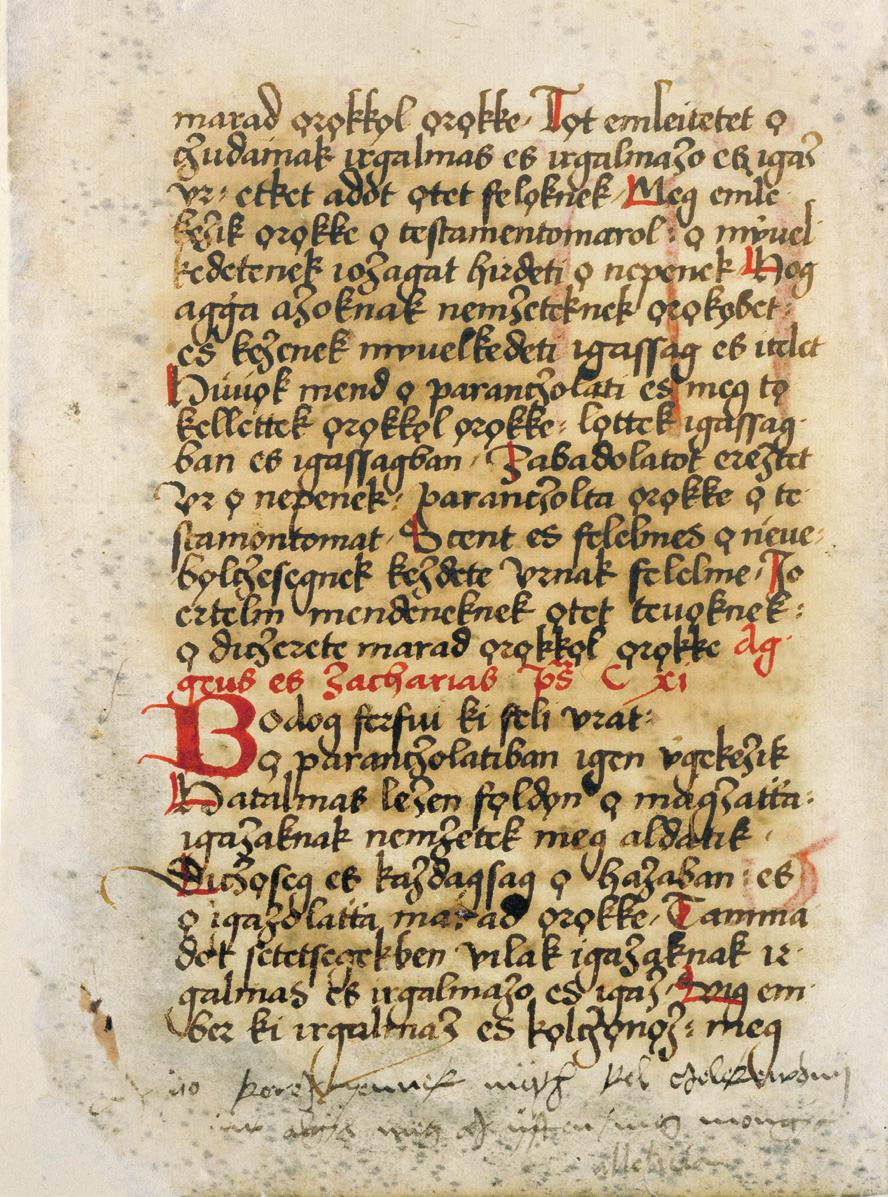 marad ọrọkkọl ọrọkke· Tọt emleitetet ọ
cʒudainak irgalmas es irgalmaʒo es igaʒ
vr: etket adot ọtet felọknek· Meg emle
keʒik ọrọkke ọ testamentomarol: ọ mỵuel
kedetenek ioʒagat hirdeti ọ nepenek Hog
agga aʒoknak nemʒeteknek ọrọkọbet:
es keʒenek mỵuelkedeti igassag es itelet
Hiuuọk mend ọ parancʒolati es meg tọ
kellettek ọrọkkọl ọrọkke: lọttek igassag·
ban es igassagban· Zabadolatot ereʒtet
Vr ọ nepenek: parancʒolta ọrọkke ọ te
stamontomat· Scent es felelmes ọ neue:
bọlcʒesegnek keʒdete Vrnak felelme· Io
ertelm mendeneknek ọtet teuọknek:
ọ dicʒerete marad ọrọkkọl ọrọkke Ag·
geus es Zacharias ps C xi
Bodog ferfiu ki feli vrat:
ọ parancʒolatiban igen vgekeʒik
Hatalmas leʒen fọldọn ọ magʒatta:
igaʒaknak nemʒetek meg aldatik·
Dicʒọseg es kaʒdagsag ọ haʒaban: es
ọ igaʒolatta marad ọrọkke· Tamma
dot setetsegekben vilak igaʒaknak ir·
galmas es irgalmaʒo es igaʒ· Vig em·
ber ki irgalmaʒ es kọlcʒọnọʒ: meg